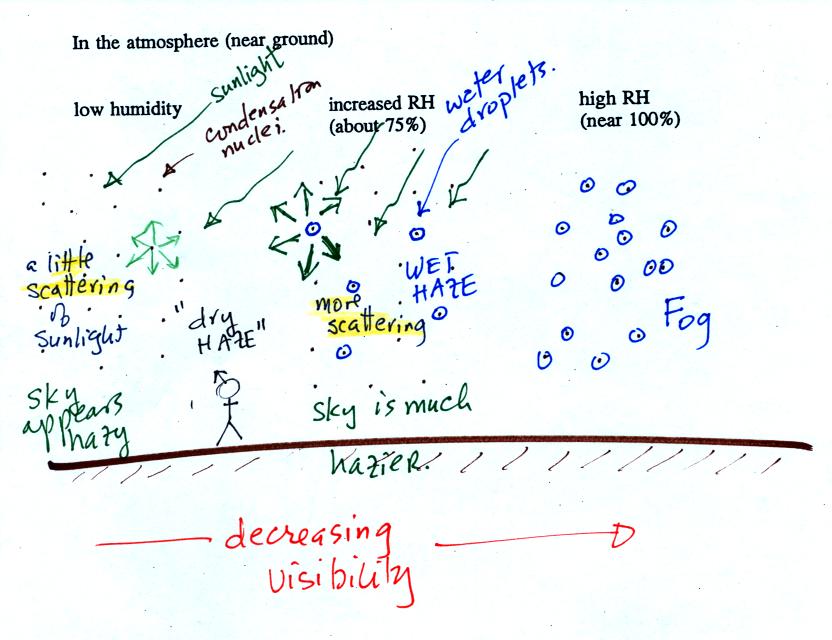 In the atmosphere (near ground)
sunlight
low humidity
condensation
nuclei.
increased RH
(about 75%)
water
droplets.
high RH
(near 100%)
a little
scattering
of
sunlight
"dry
HAZE"
more
scattering
WET
HAZE
Fog
sky
appears
hazy
sky is much
hazier.
decreasing
visibility